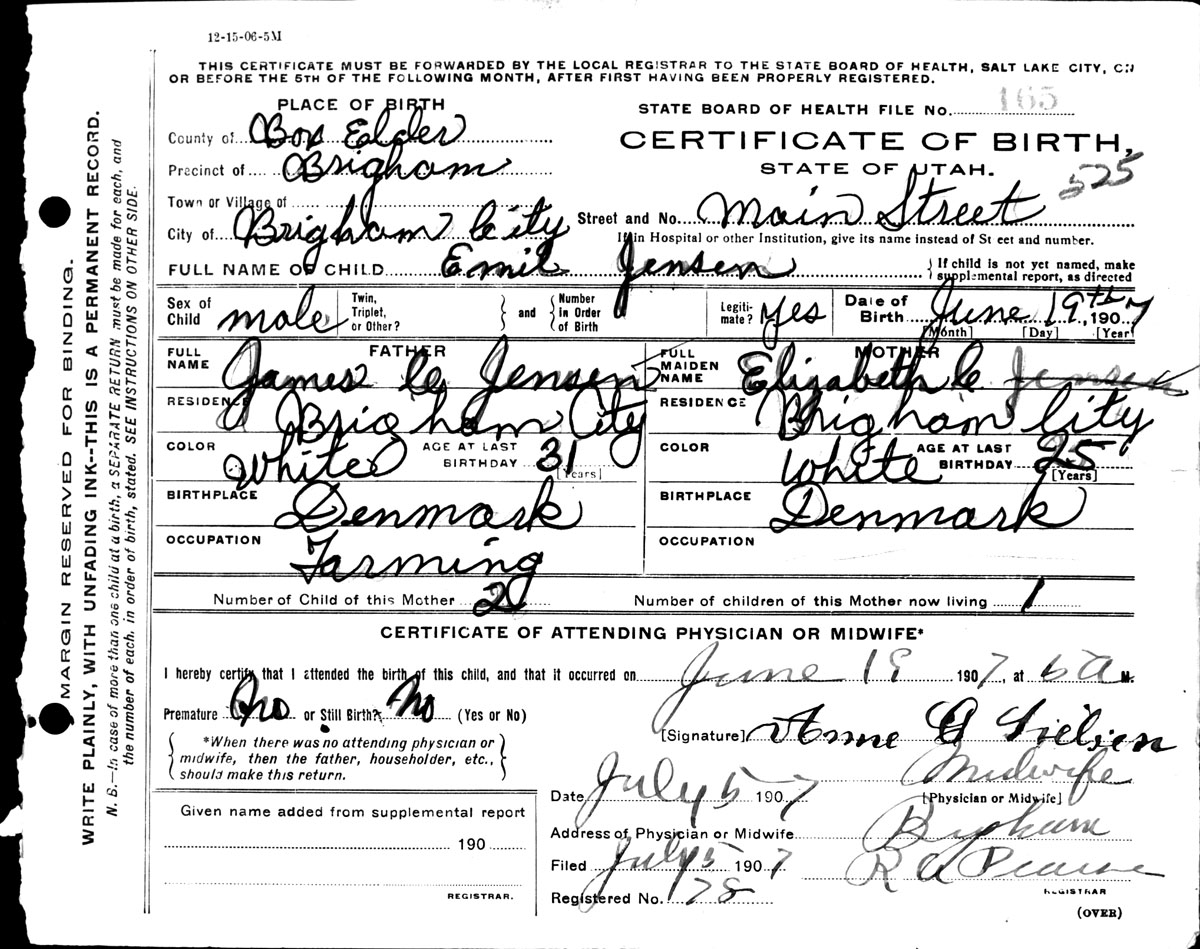 12-15-06-5M
THIS CERTIFICATE MUST BE FORWARDED BY THE LOCAL REGISTRAR TO THE STATE BOARD OF HEALTH, SALT LAKE CITY, ON
OR BEFORE THE 5TH OF THE FOLLOWING MONTH, AFTER FIRST HAVING BEEN PROPERLY REGISTERED.
PLACE OF BIRTH
STATE BOARD OF HEALTH FILE No. 165
County of Box Elder
CERTIFICATE OF BIRTH,
Precinct of Brigham
STATE OF UTAH.
525
Town or Village of
City of Brigham City Street and No. Main Street
If in Hospital or other Institution, give its name instead of St eet and number.
FULL NAME OF CHILD Emil Jensen { If child is not yet named, make
supplemental report, as directed
Sex of Child male Twin, Triplet, or Other? } and { Number in Order of Birth Legiti-mate? Yes Date of Birth June 19th, 1907
[Month] [Day] [Year]
FATHER MOTHER
FULL NAME James C Jensen FULL MAIDEN NAME Elizabeth C Jensen
RESIDENCE Brigham City RESIDENCE Brigham City
COLOR White AGE AT LAST BIRTHDAY 31 [Years] COLOR White AGE AT LAST BIRTHDAY 25 [Years]
BIRTHPLACE Denmark BIRTHPLACE Denmark
OCCUPATION Farming OCCUPATION
Number of Child of this Mother 2 Number of children of this Mother now living 1
CERTIFICATE OF ATTENDING PHYSICIAN OR MIDWIFE*
I hereby certify that I attended the birth of this child, and that it occurred on June 19 1907, at 6 a M.
Premature No or Still Birth? No (Yes or No)
[Signature] Anne G
*When there was no attending physician or
midwife, then the father, householder, etc.,
should make this return.
Midwife
[Physician or Midwife]
Date July 5 1907
Given name added from supplemental report
190
REGISTRAR.
Address of Physician or Midwife Brigham
Filed July 5 1907 R A Pearse
REGISTRAR
Registered No. 78
(OVER)
MARGIN RESERVED FOR BINDING.
WRITE PLAINLY, WITH UNFADING INK--THIS IS A PERMANENT RECORD.
N. B.--In case of more than one child at a birth, a SEPARATE RETURN must be made for each, and
the number of each, in order of birth, stated. SEE INSTRUCTIONS ON OTHER SIDE.